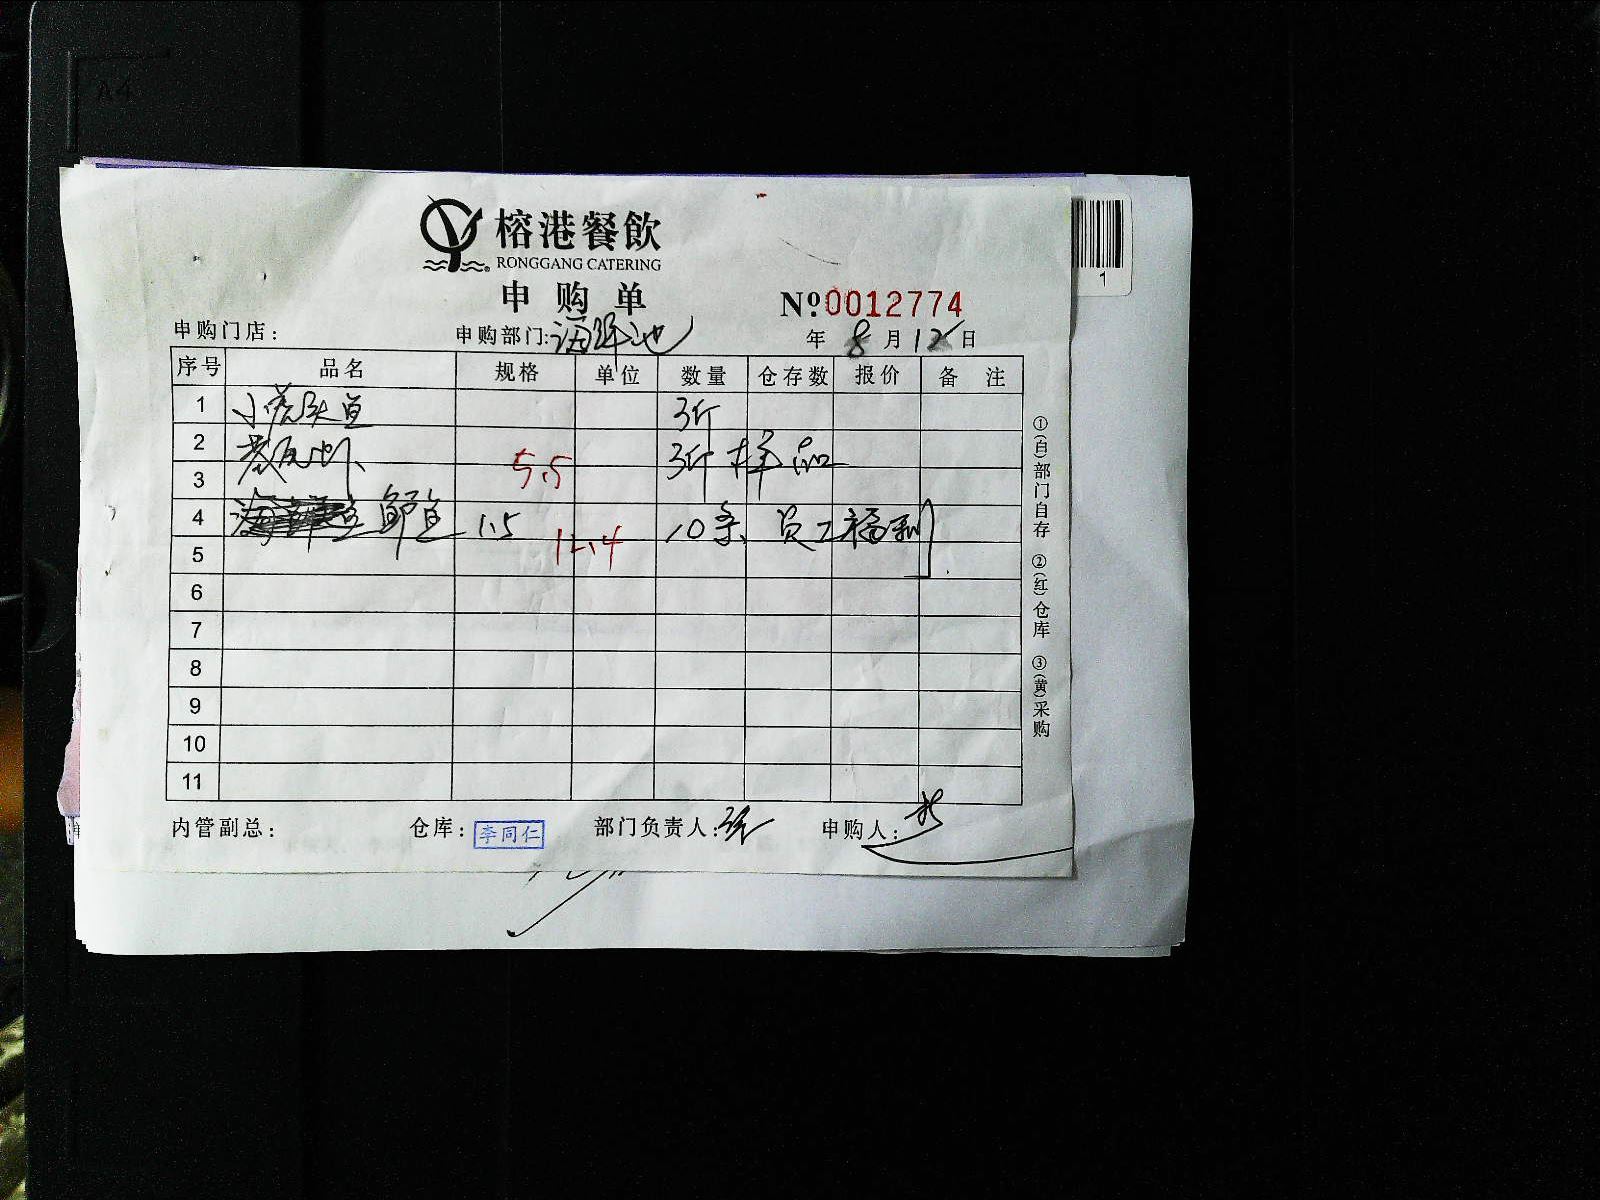 A4
榕港餐飲
RONGGANG CATERING
申购单
Nº0012774
1
申购门店: 申购部门:海鲜池 年 8 月 12 日
序号 品名 规格 单位 数量 仓存数 报价 备注
1 小老头鱼 3斤
2 3斤 样品
3 5.5
4 鲫鱼 1.5 10条 员工福利
5 11.4
6
7
8
9
10
11
①(白)部门自存 ②(红)仓库 ③(黄)采购
内管副总: 仓库: 李同仁 部门负责人: 申购人: